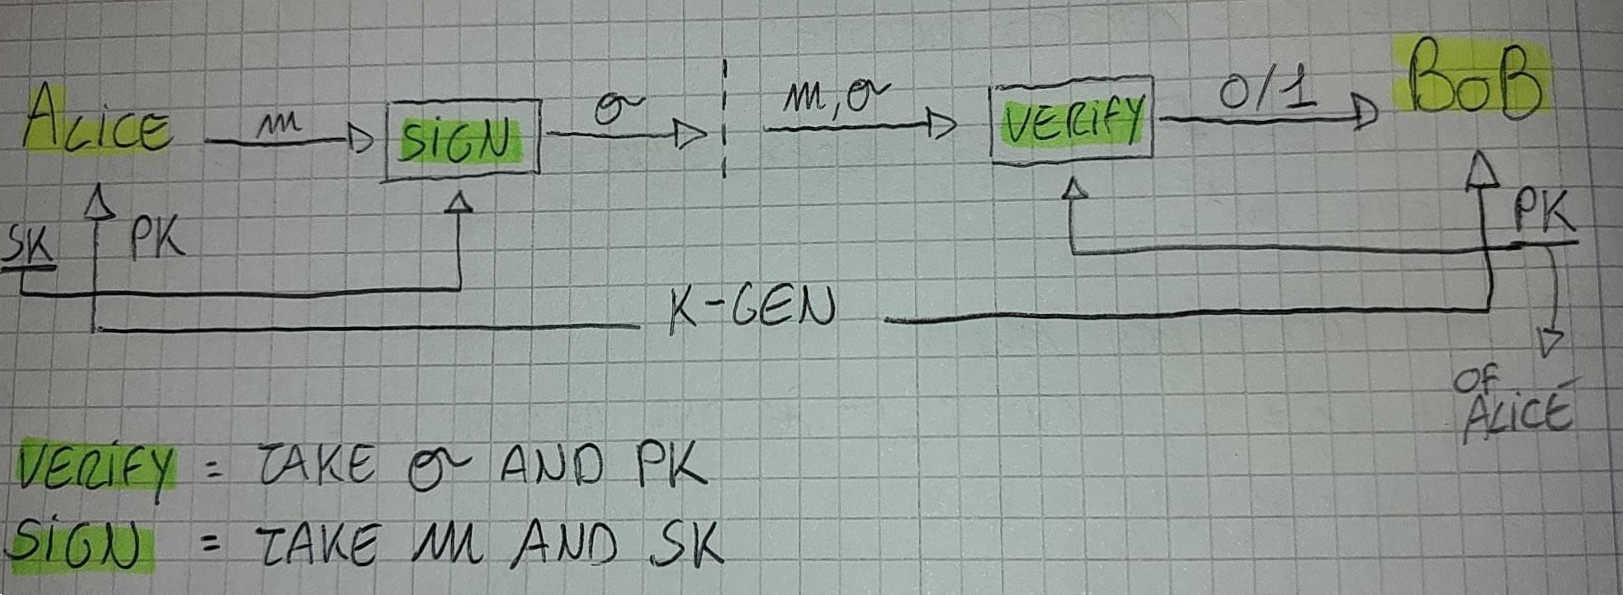 ALICE m SIGN σ m, σ VERIFY 0/1 BOB
SK PK PK
K-GEN
OF
ALICE
VERIFY = TAKE σ AND PK
SIGN = TAKE m AND SK